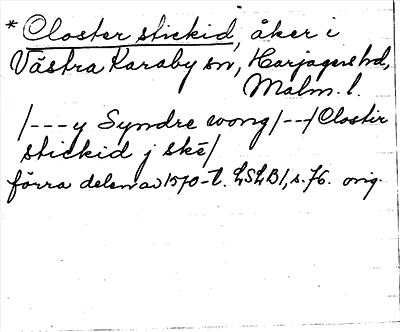 * Closter stickid, åker i
Västra Karaby sn, Harjagers hd,
Malm. l.
/---y Syndre wong/--/Clostir
stickid j skē/
förra delen av 1570-t. LSLB1, s. 76. orig.